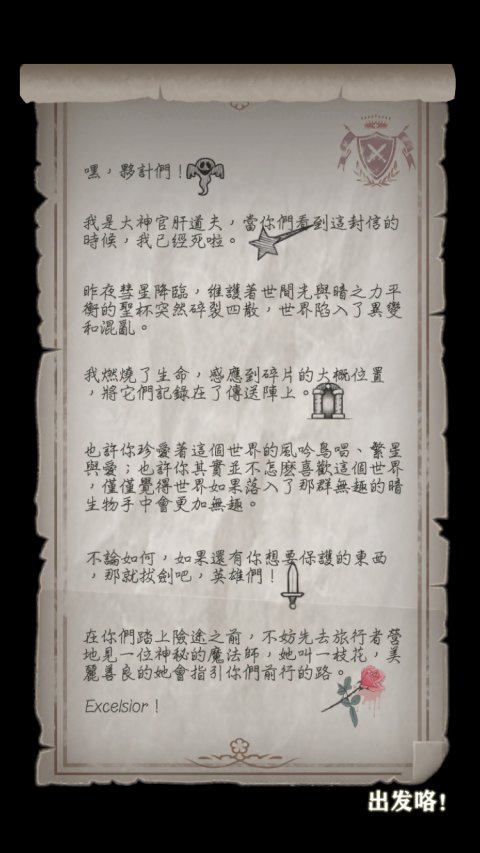 嘿，夥計們！
我是大神官肝道夫，當你們看到這封信的
時候，我已經死啦。
昨夜彗星降臨，維護著世間光與暗之力平
衡的聖杯突然碎裂四散，世界陷入了異變
和混亂。
我燃燒了生命，感應到碎片的大概位置
，將它們記錄在了傳送陣上。
也許你珍愛著這個世界的風吟鳥唱、繁星
與愛；也許你其實並不怎麼喜歡這個世界
，僅僅覺得世界如果落入了那群無趣的暗
生物手中會更加無趣。
不論如何，如果還有你想要保護的東西
，那就拔劍吧，英雄們！
在你們踏上險途之前，不妨先去旅行者營
地見一位神秘的魔法師，她叫一枝花，美
麗善良的她會指引你們前行的路。
Excelsior！
出发咯！